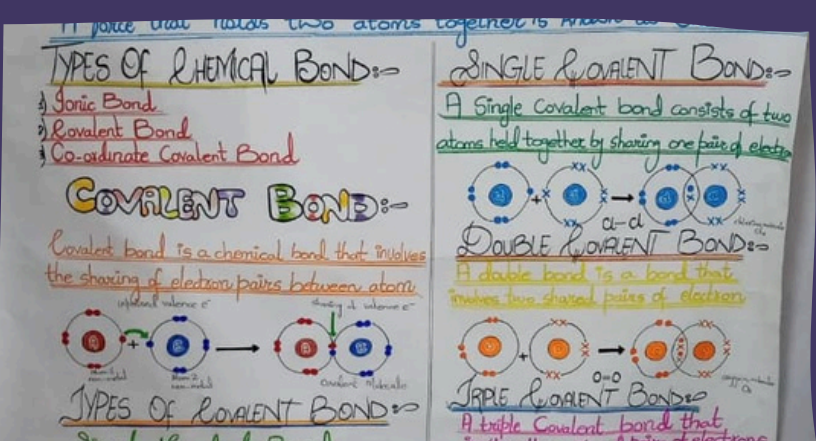 A force that holds two atoms together is known as
TYPES OF CHEMICAL BOND:-
1) Ionic Bond
2) Covalent Bond
3) Co-ordinate Covalent Bond
COVALENT BOND:-
Covalent bond is a chemical bond that involves
the sharing of electron pairs between atom
unpaired valence e⁻
sharing of valence e⁻
A
+
B
Atom 1
non-metal
Atom 2
non-metal
Covalent Molecule
TYPES OF COVALENT BOND:-
SINGLE COVALENT BOND:-
A Single Covalent bond consists of two
atoms held together by sharing one pair of electron
Cl
+
Cl
Cl
Cl
Cl-Cl
chlorine molecule
Cl₂
DOUBLE COVALENT BOND:-
A double bond is a bond that
involves two shared pairs of electron
+
O=O
oxygen molecule
O₂
TRPLE COVALENT BOND:-
A triple Covalent bond that